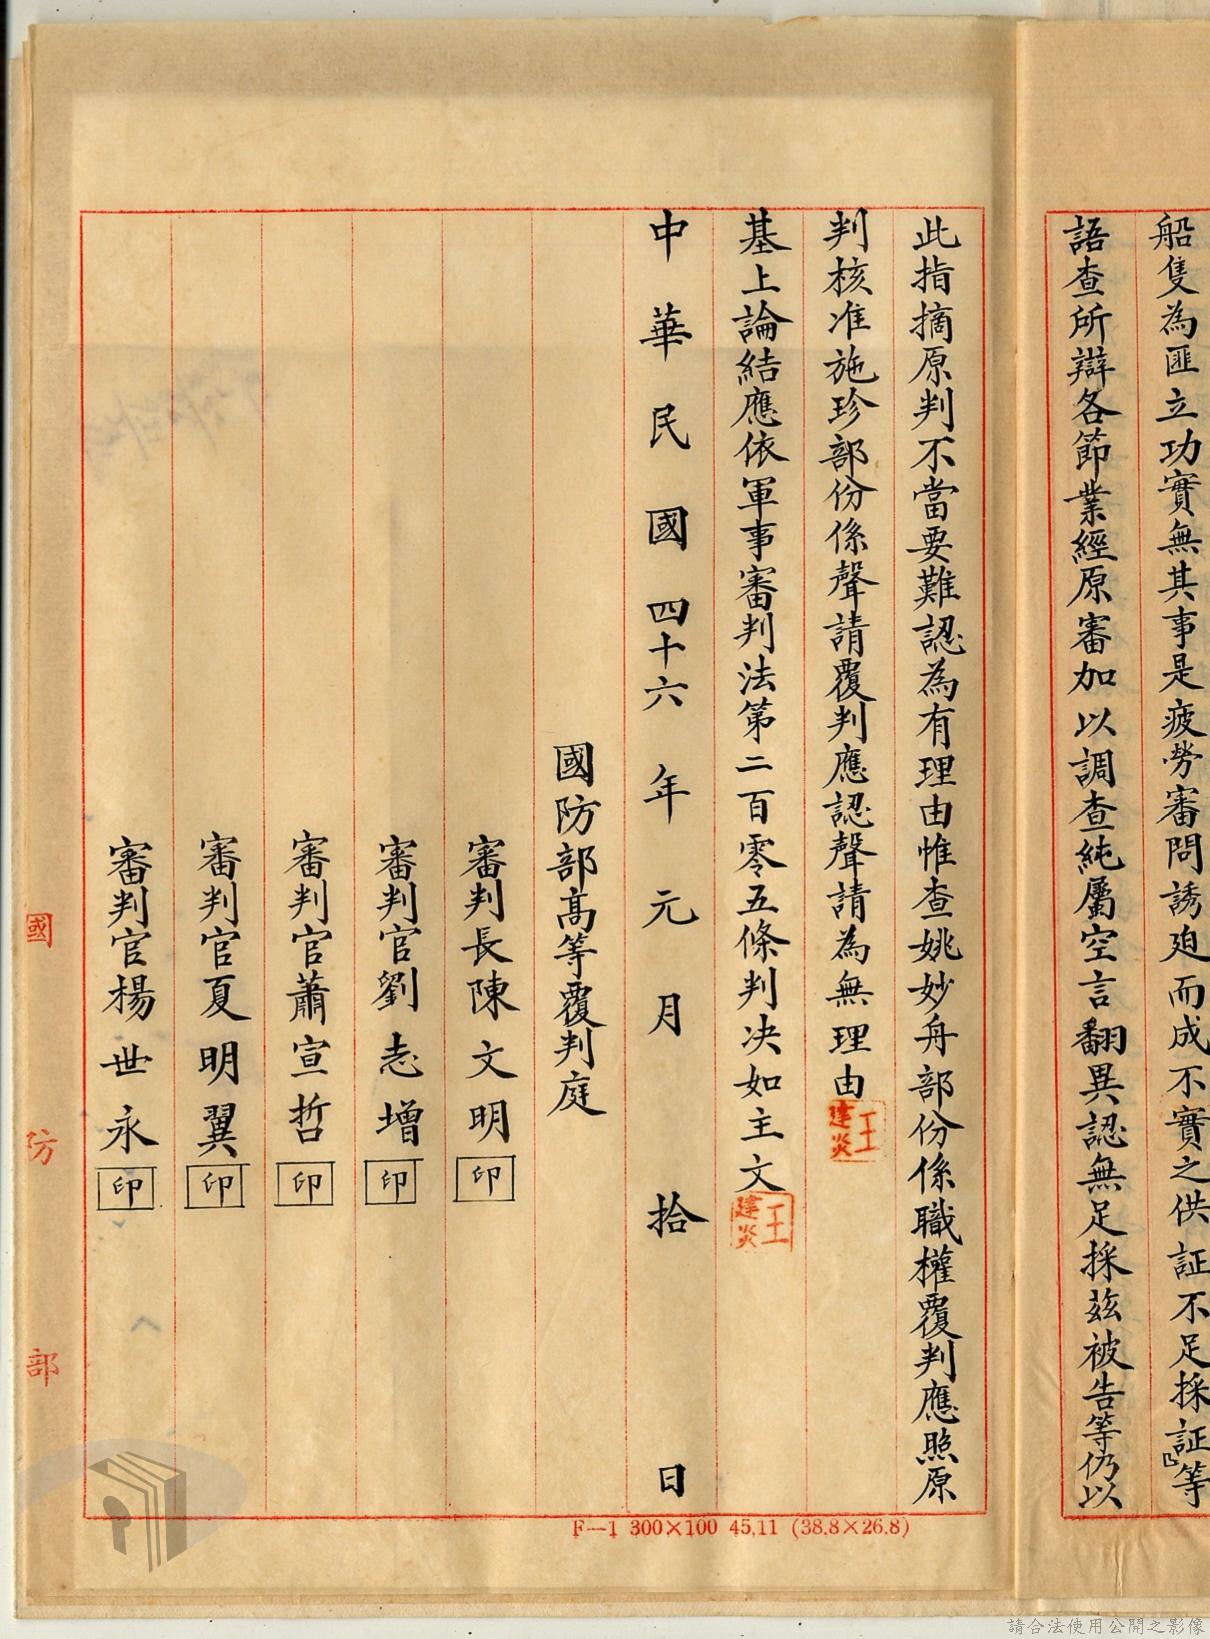 船隻為匪立功實無其事是疲勞審問誘迫而成不實之供証不足採証」等
語查所辯各節業經原審加以調查純屬空言翻異認無足採茲被告等仍以
此指摘原判不當要難認為有理由惟查姚妙舟部份係職權覆判應照原
判核准施珍部份係聲請覆判應認聲請為無理由
王建炎
基上論結應依軍事審判法第二百零五條判決如主文
王建炎
中華民國四十六年元月拾日
國防部高等覆判庭
審判長陳文明印
審判官劉志增印
審判官蕭宣哲印
審判官夏明翼印
審判官楊世永印
國防部
F—1 300×100 45.11 (38.8×26.8)
請合法使用公開之影像